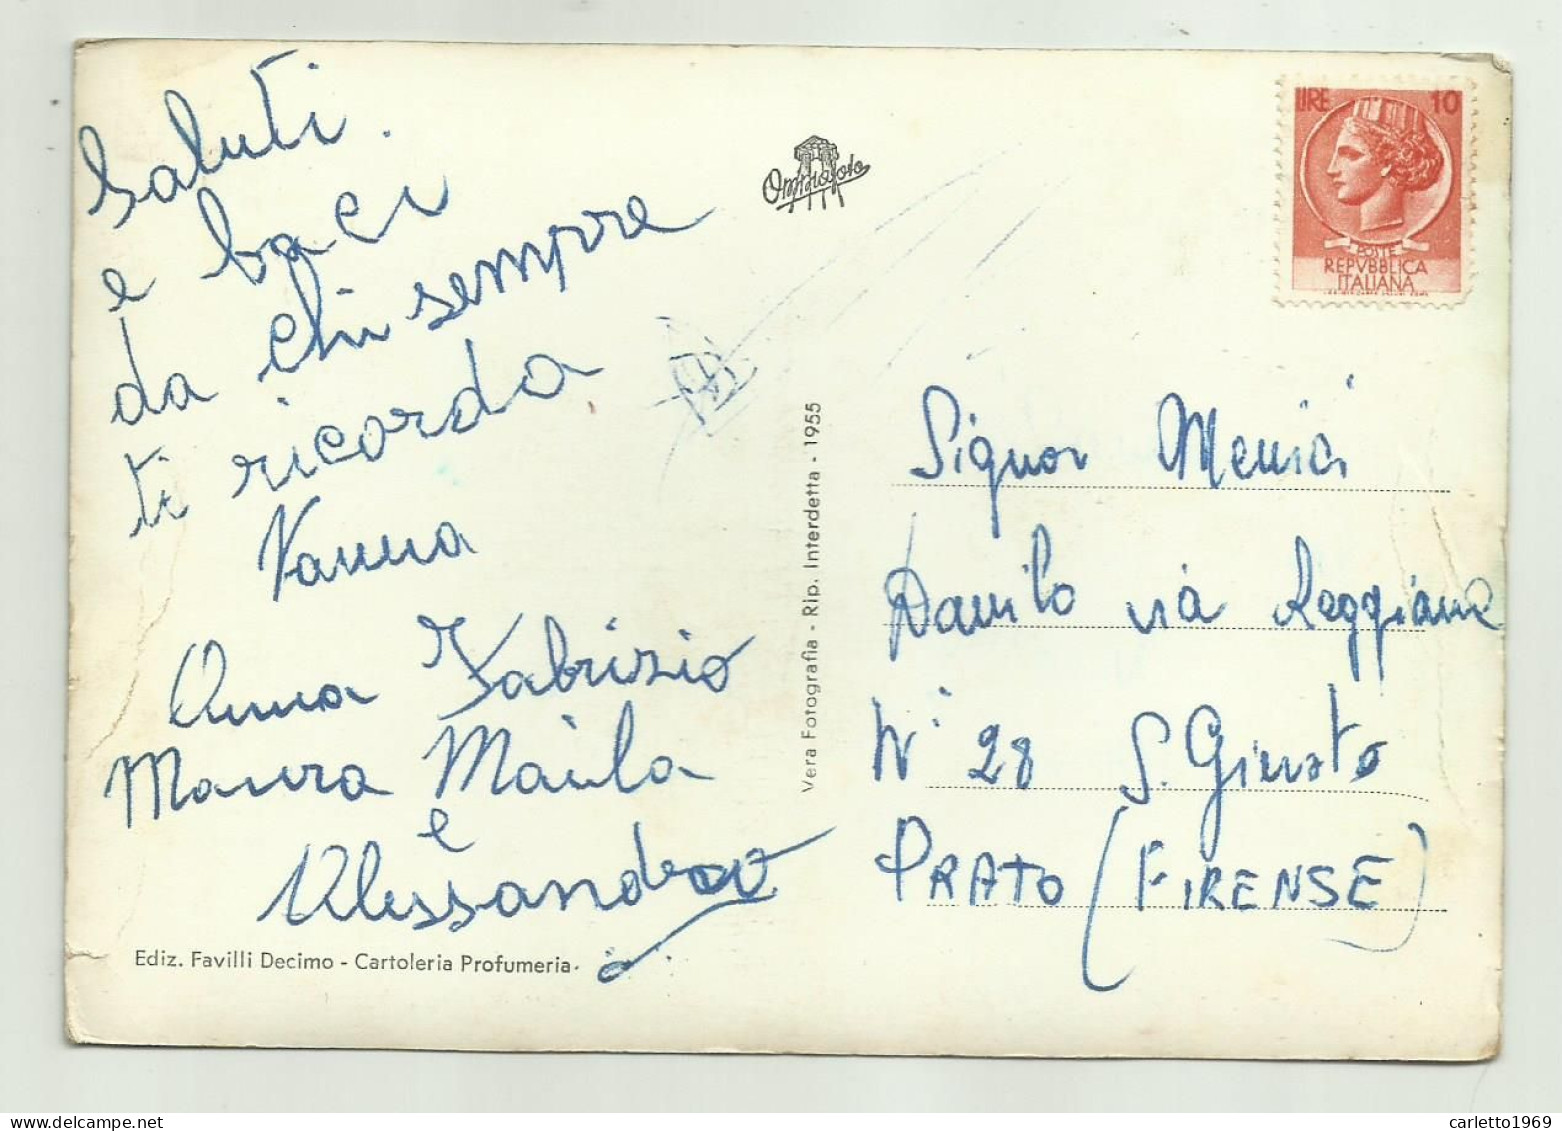 Saluti
e baci
da chi sempre
ti ricorda
Vanna
Anna Fabrizio
Maura Maila
e
Alessandro
Ediz. Favilli Decimo - Cartoleria Profumeria
Vera Fotografia - Rip. Interdetta - 1955
Omniafoto
LIRE 10
POSTE
REPVBBLICA
ITALIANA
Signor Menici
Danilo via Reggiana
N° 28 S. Giusto
PRATO (FIRENSE)
carletto1969